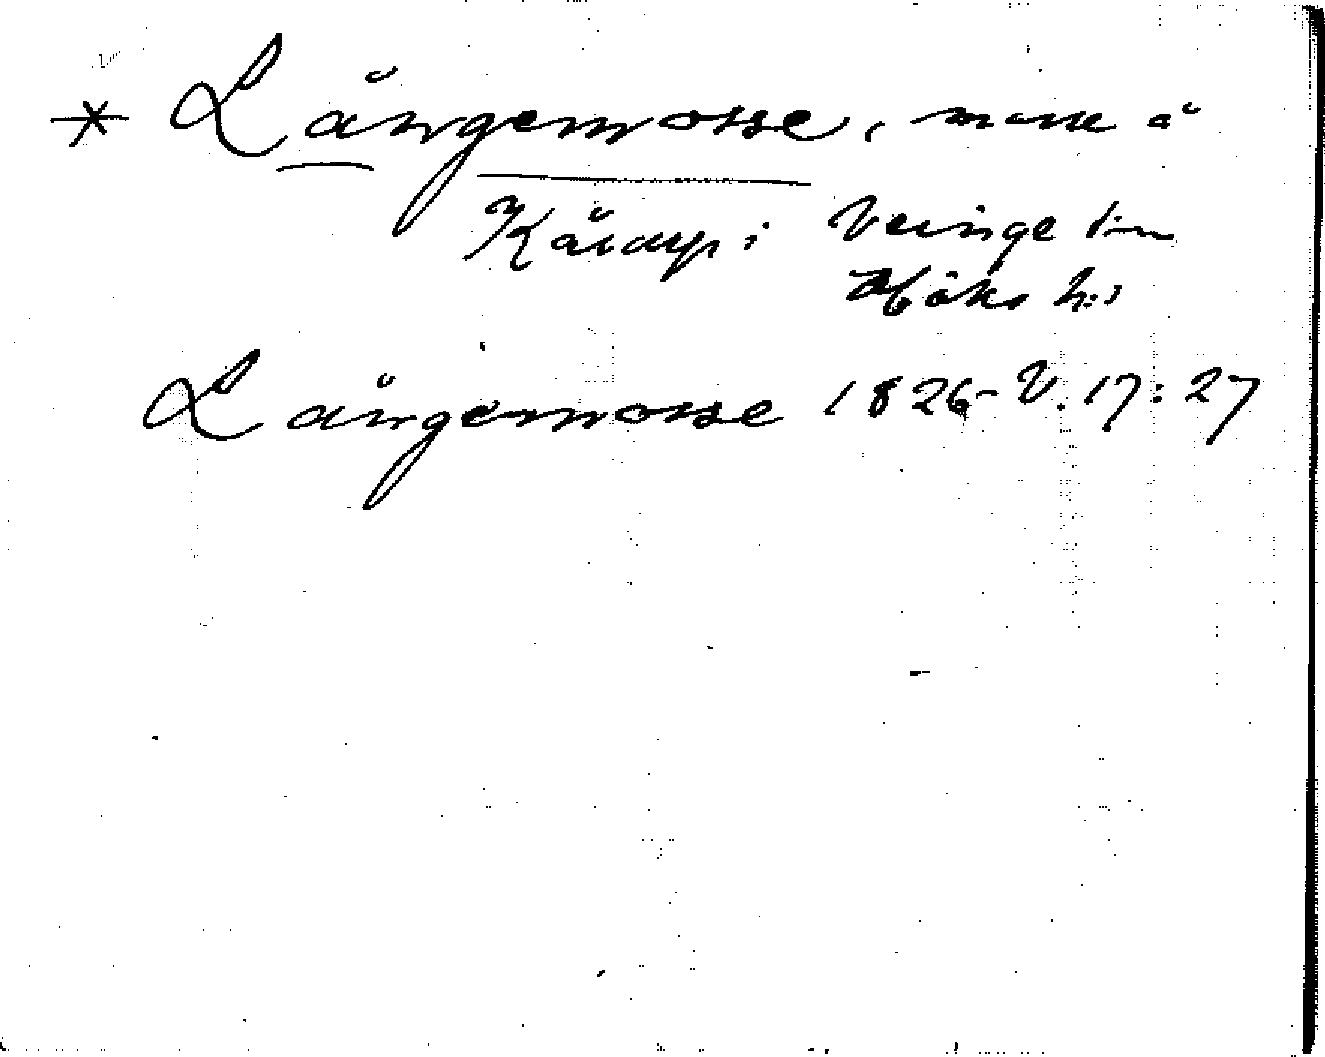 * Långemosse, mosse å
Kårarp i Veinge sn
Höks h:d
Långemosse 1826 - V. 17: 27